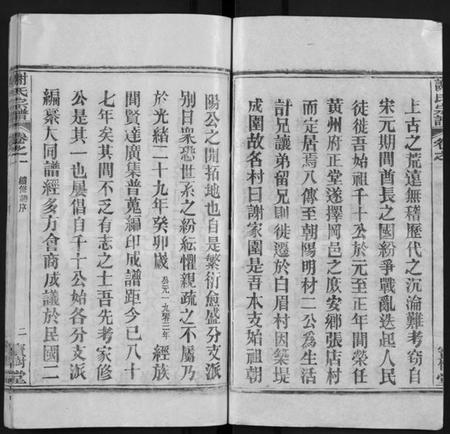 上古之荒遠無稽歷代之沉淪難考窃自
宋元期間酋長之國紛爭戰亂迭起人民
徒徙吾始祖千十公於元至正年間榮任
黃州府正堂遂擇岡邑之庶安鄉張店村
而定居焉八傳至朝陽明材二公為生活
計兄議弟留兄則徙遷於白眉村因築堤
成圍故名村曰謝家圍是吾本支始祖朝
謝氏宗譜 卷之一 續修譜序 二 寶樹堂
陽公之開拓地也自是繁衍愈盛分支派
別目衆恐世系之紛紜懼親疏之不屬乃
於光緒二十九年癸卯歲 公元一九零三年 經族
間賢達廣集普蒐編印成譜距今已八十
七年矣其間不乏有志之士吾先考家修
公是其一也屢倡自千十公始各分支派
編纂大同譜經多方會商成議於民國二